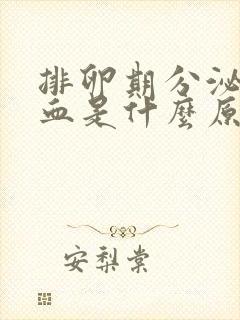 排卵期分泌
血是什麼原
安梨棠